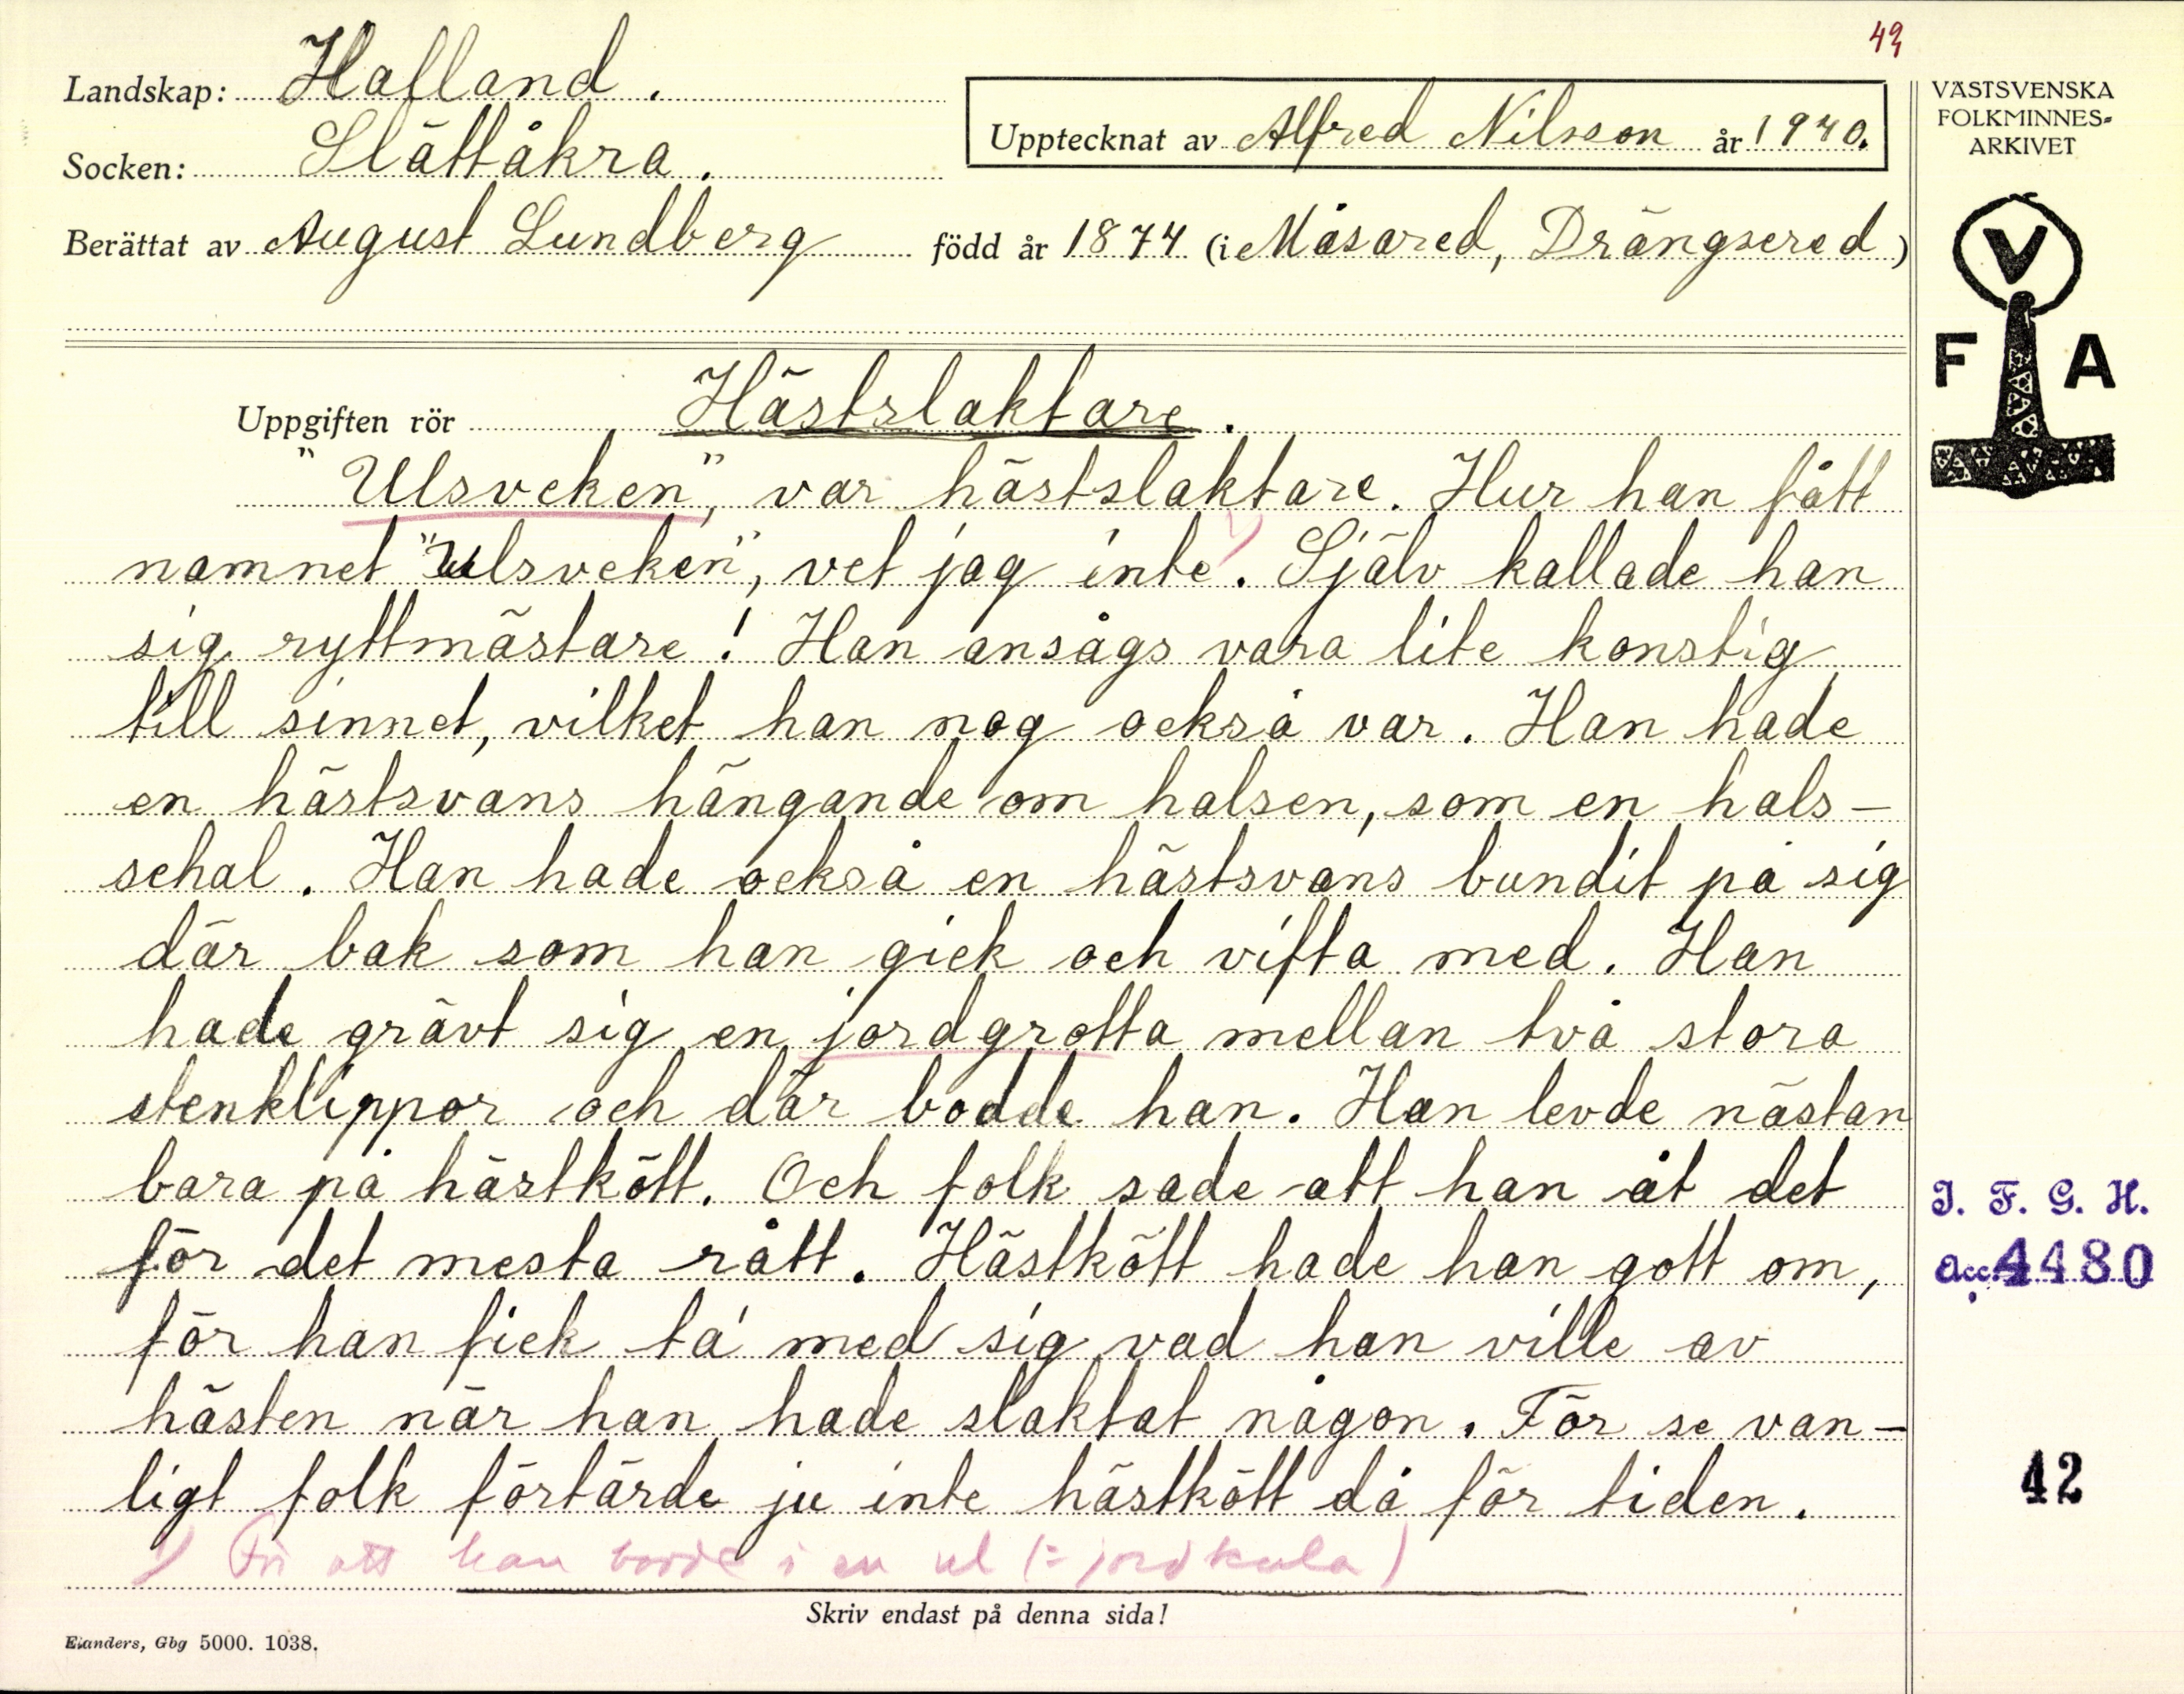 49
Landskap: Halland.
Socken: Slättåkra.
Upptecknat av Alfred Nilsson år 1940.
Berättat av August Lundberg född år 1874 (i Måsared, Drängsered)
VÄSTSVENSKA
FOLKMINNES-
ARKIVET
V
F A
Uppgiften rör Hästslaktare.
"Ulsveken", var hästslaktare. Hur han fått
namnet "Ulsveken", vet jag inte 1). Själv kallade han
sig ryttmästare! Han ansågs vara lite konstig
till sinnet, vilket han nog också var. Han hade
en hästsvans hängande om halsen, som en hals-
schal. Han hade också en hästsvans bundit på sig
där bak som han gick och vifta med. Han
hade grävt sig en jordgrotta mellan två stora
stenklippor och där bodde han. Han levde nästan
bara på hästkött. Och folk sade att han åt det
för det mesta rått. Hästkött hade han gott om,
för han fick ta' med sig vad han ville av
hästen när han hade slaktat någon. För se van-
ligt folk förtärde ju inte hästkött då för tiden.
1) För att han bodde i en ul (= jordkula)
Skriv endast på denna sida!
Elanders, Gbg 5000. 1038.
I. F. G. H.
Acc. 4480
42